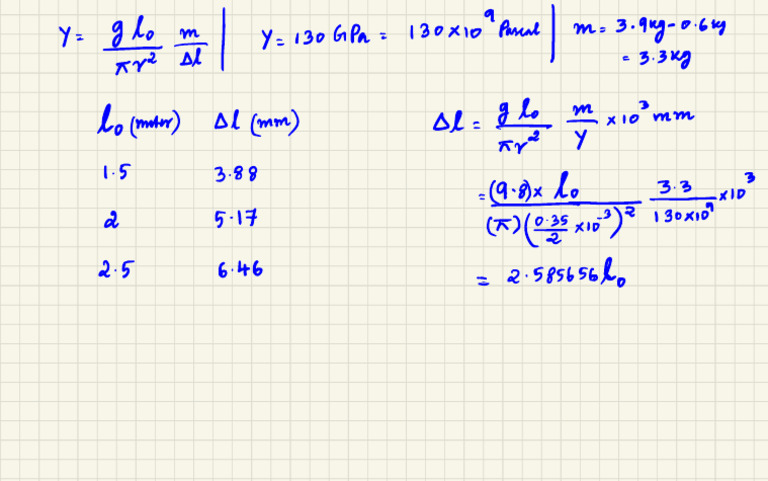 Y = g l₀ / πr² m / Δl | Y = 130 GPa = 130 × 10⁹ Pascal | m = 3.9 kg - 0.6 kg
= 3.3 kg
l₀ (meter) Δl (mm)
1.5 3.88
2 5.17
2.5 6.46
Δl = g l₀ / πr² m / Y × 10³ mm
= (9.8) × l₀ / (π) (0.35 / 2 × 10⁻³)² 3.3 / 130 × 10⁹ × 10³
= 2.585656 l₀